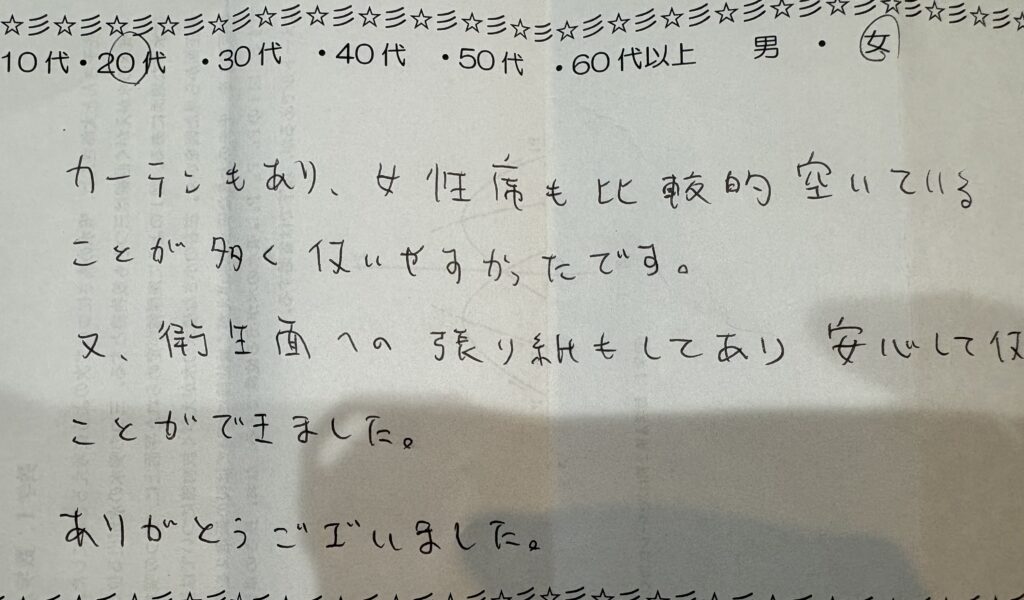 ☆彡☆彡☆彡☆彡☆彡☆彡☆彡☆彡☆彡☆彡☆彡☆彡☆彡☆彡☆彡☆彡☆彡☆彡☆彡☆彡
10代・20代・30代・40代・50代・60代以上 男・女
カーテンもあり、女性席も比較的空いている
ことが多く使いやすかったです。
又、衛生面への張り紙もしてあり 安心して使
ことができました。
ありがとうございました。